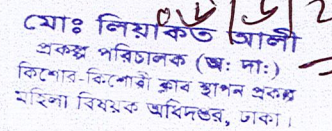 মোঃ লিয়াকত আলী
প্রকল্প পরিচালক (অঃ দাঃ)
কিশোর-কিশোরী ক্লাব স্থাপন প্রকল্প
মহিলা বিষয়ক অধিদপ্তর, ঢাকা।